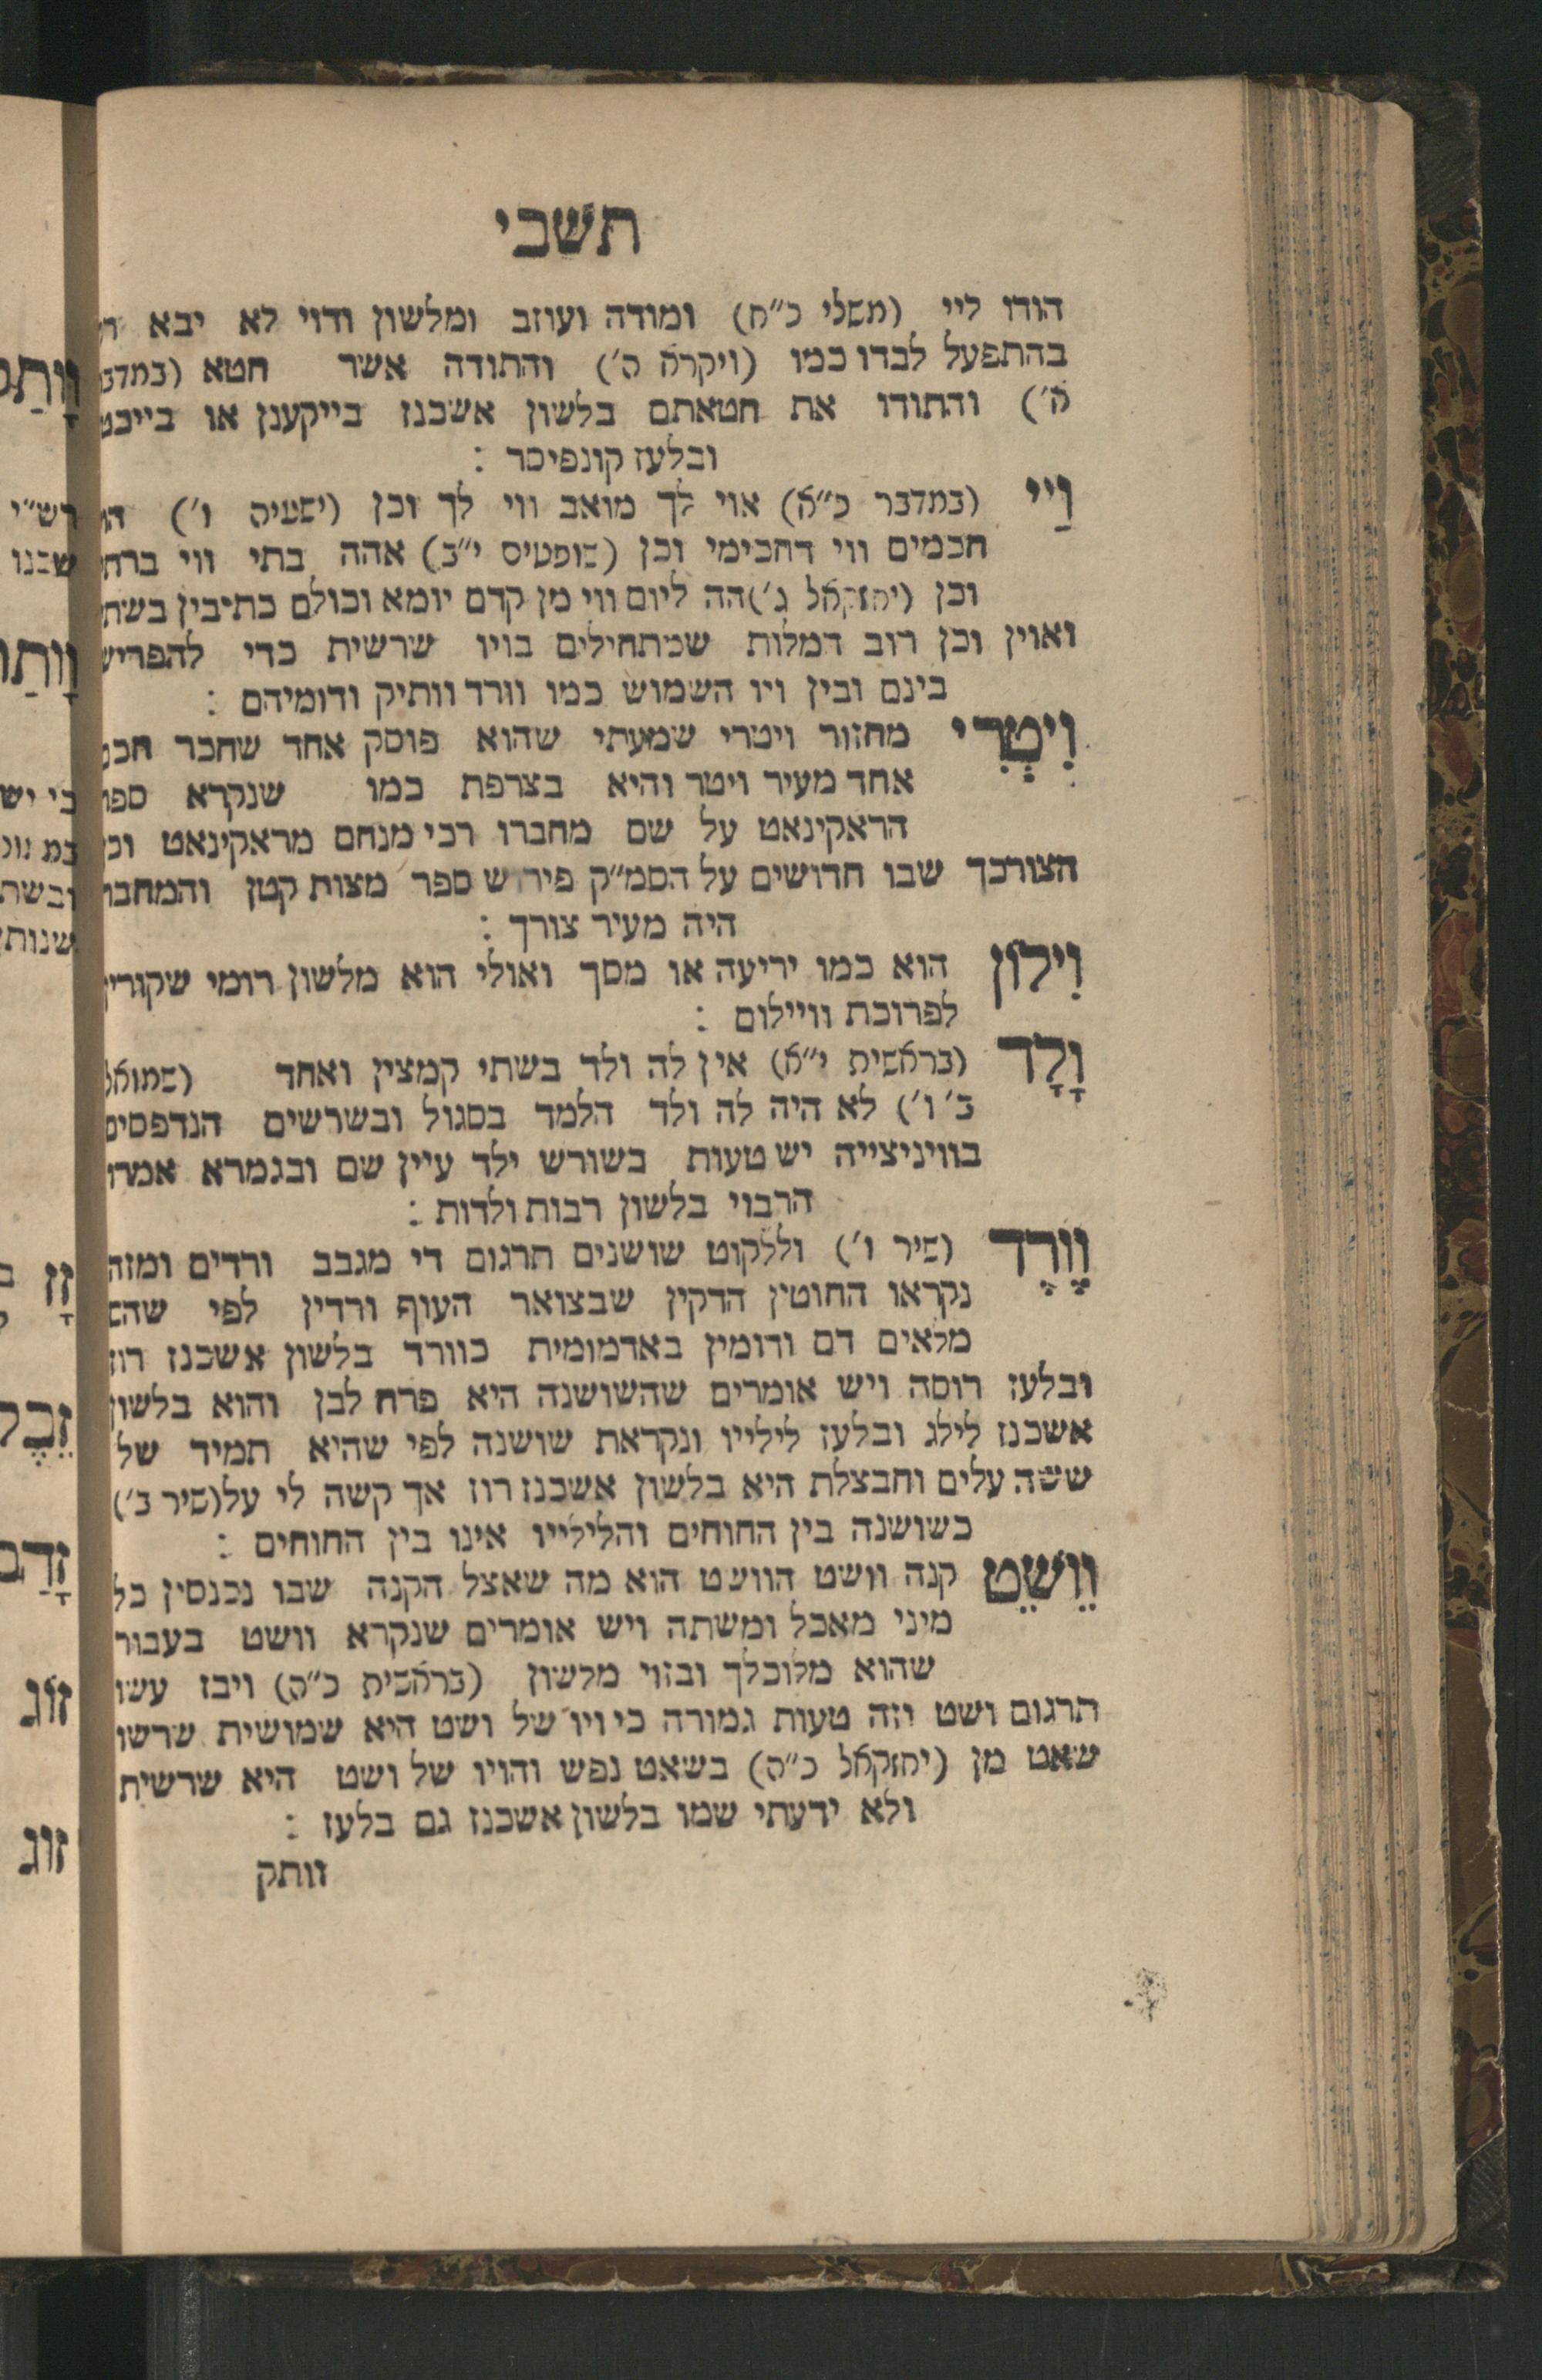 תשבי
הודו ליי (משלי כ״ח) ומודה ועוזב ומלשון ודוי לא יבא
בהתפעל לבדו כמו (ויקרא ה׳) והתודה אשר חטא (במדבר
ה׳) והתודו את חטאתם בלשון אשכנז בייקענן או בייכט
ובלעז קונפיסר :
וַיי (במדבר כ״א) אוי לך מואב ווי לך וכן (ישעיה ו׳)
חכמים ווי דחכימי וכן (שופטים י״ב) אהה בתי ווי ברתי
וכן (יחזקאל ג׳) הה ליום ווי מן קדם יומא וכולם כתיבין בשתי
ואוין וכן רוב המלות שמתחילים בויו שרשית כדי להפריש
בינם ובין ויו השמוש כמו וורד וותיק ודומיהם :
וִיטְרִי מחזור ויטרי שמעתי שהוא פוסק אחד שחבר חכם
אחד מעיר ויטר והיא בצרפת כמו שנקרא ספר
הראקינאט על שם מחברו רבי מנחם מראקינאט וכן
הצורכך שבו חדושים על הסמ״ק פירוש ספר מצות קטן והמחבר
היה מעיר צורך :
וִילוֹן הוא כמו יריעה או מסך ואולי הוא מלשון רומי שקורין
לפרוכת וויילום :
וָלָד (בראשית י״א) אין לה ולד בשתי קמצין ואחד (שמואל
ב׳ ו׳) לא היה לה ולד הלמד בסגול ובשרשים הנדפסים
בוויניצייה יש טעות בשורש ילד עיין שם ובגמרא אמרו
הרבוי בלשון רבות ולדות :
וֶורֶד (שיר ו׳) וללקוט שושנים תרגום די מגבב ורדים ומזה
נקראו החוטין הדקין שבצואר העוף ורדין לפי שהם
מלאים דם ודומין באדמומית כוורד בלשון אשכנז רוז
ובלעז רוסה ויש אומרים שהשושנה היא פרח לבן והוא בלשון
אשכנז לילג ובלעז ליליייו ונקראת שושנה לפי שהיא תמיד של
ששה עלים וחבצלת היא בלשון אשכנז רוז אך קשה לי על (שיר ב׳)
כשושנה בין החוחים והליליייו אינו בין החוחים :
וֵושֵׁט קנה וושט הוושט הוא מה שאצל הקנה שבו נכנסין כל
מיני מאכל ומשתה ויש אומרים שנקרא וושט בעבור
שהוא מלוכלך ובזוי מלשון (בראשית כ״ה) ויבז עשו
תרגום ושט וזה טעות גמורה כי ויו של ושט היא שמושית שרשו
שאט מן (יחזקאל כ״ה) בשאט נפש והויו של ושט היא שרשית
ולא ידעתי שמו בלשון אשכנז גם בלעז :
וותק